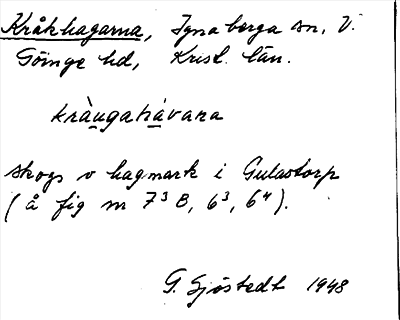 Kråkhagarna, Ignaberga sn, V.
Göinge hd, Krist. län.
kràu̲gahà̲vara
skogs o hagmark i Gulastorp
(å fig nr 7³ B, 6³, 6⁴).
G. Sjöstedt 1948